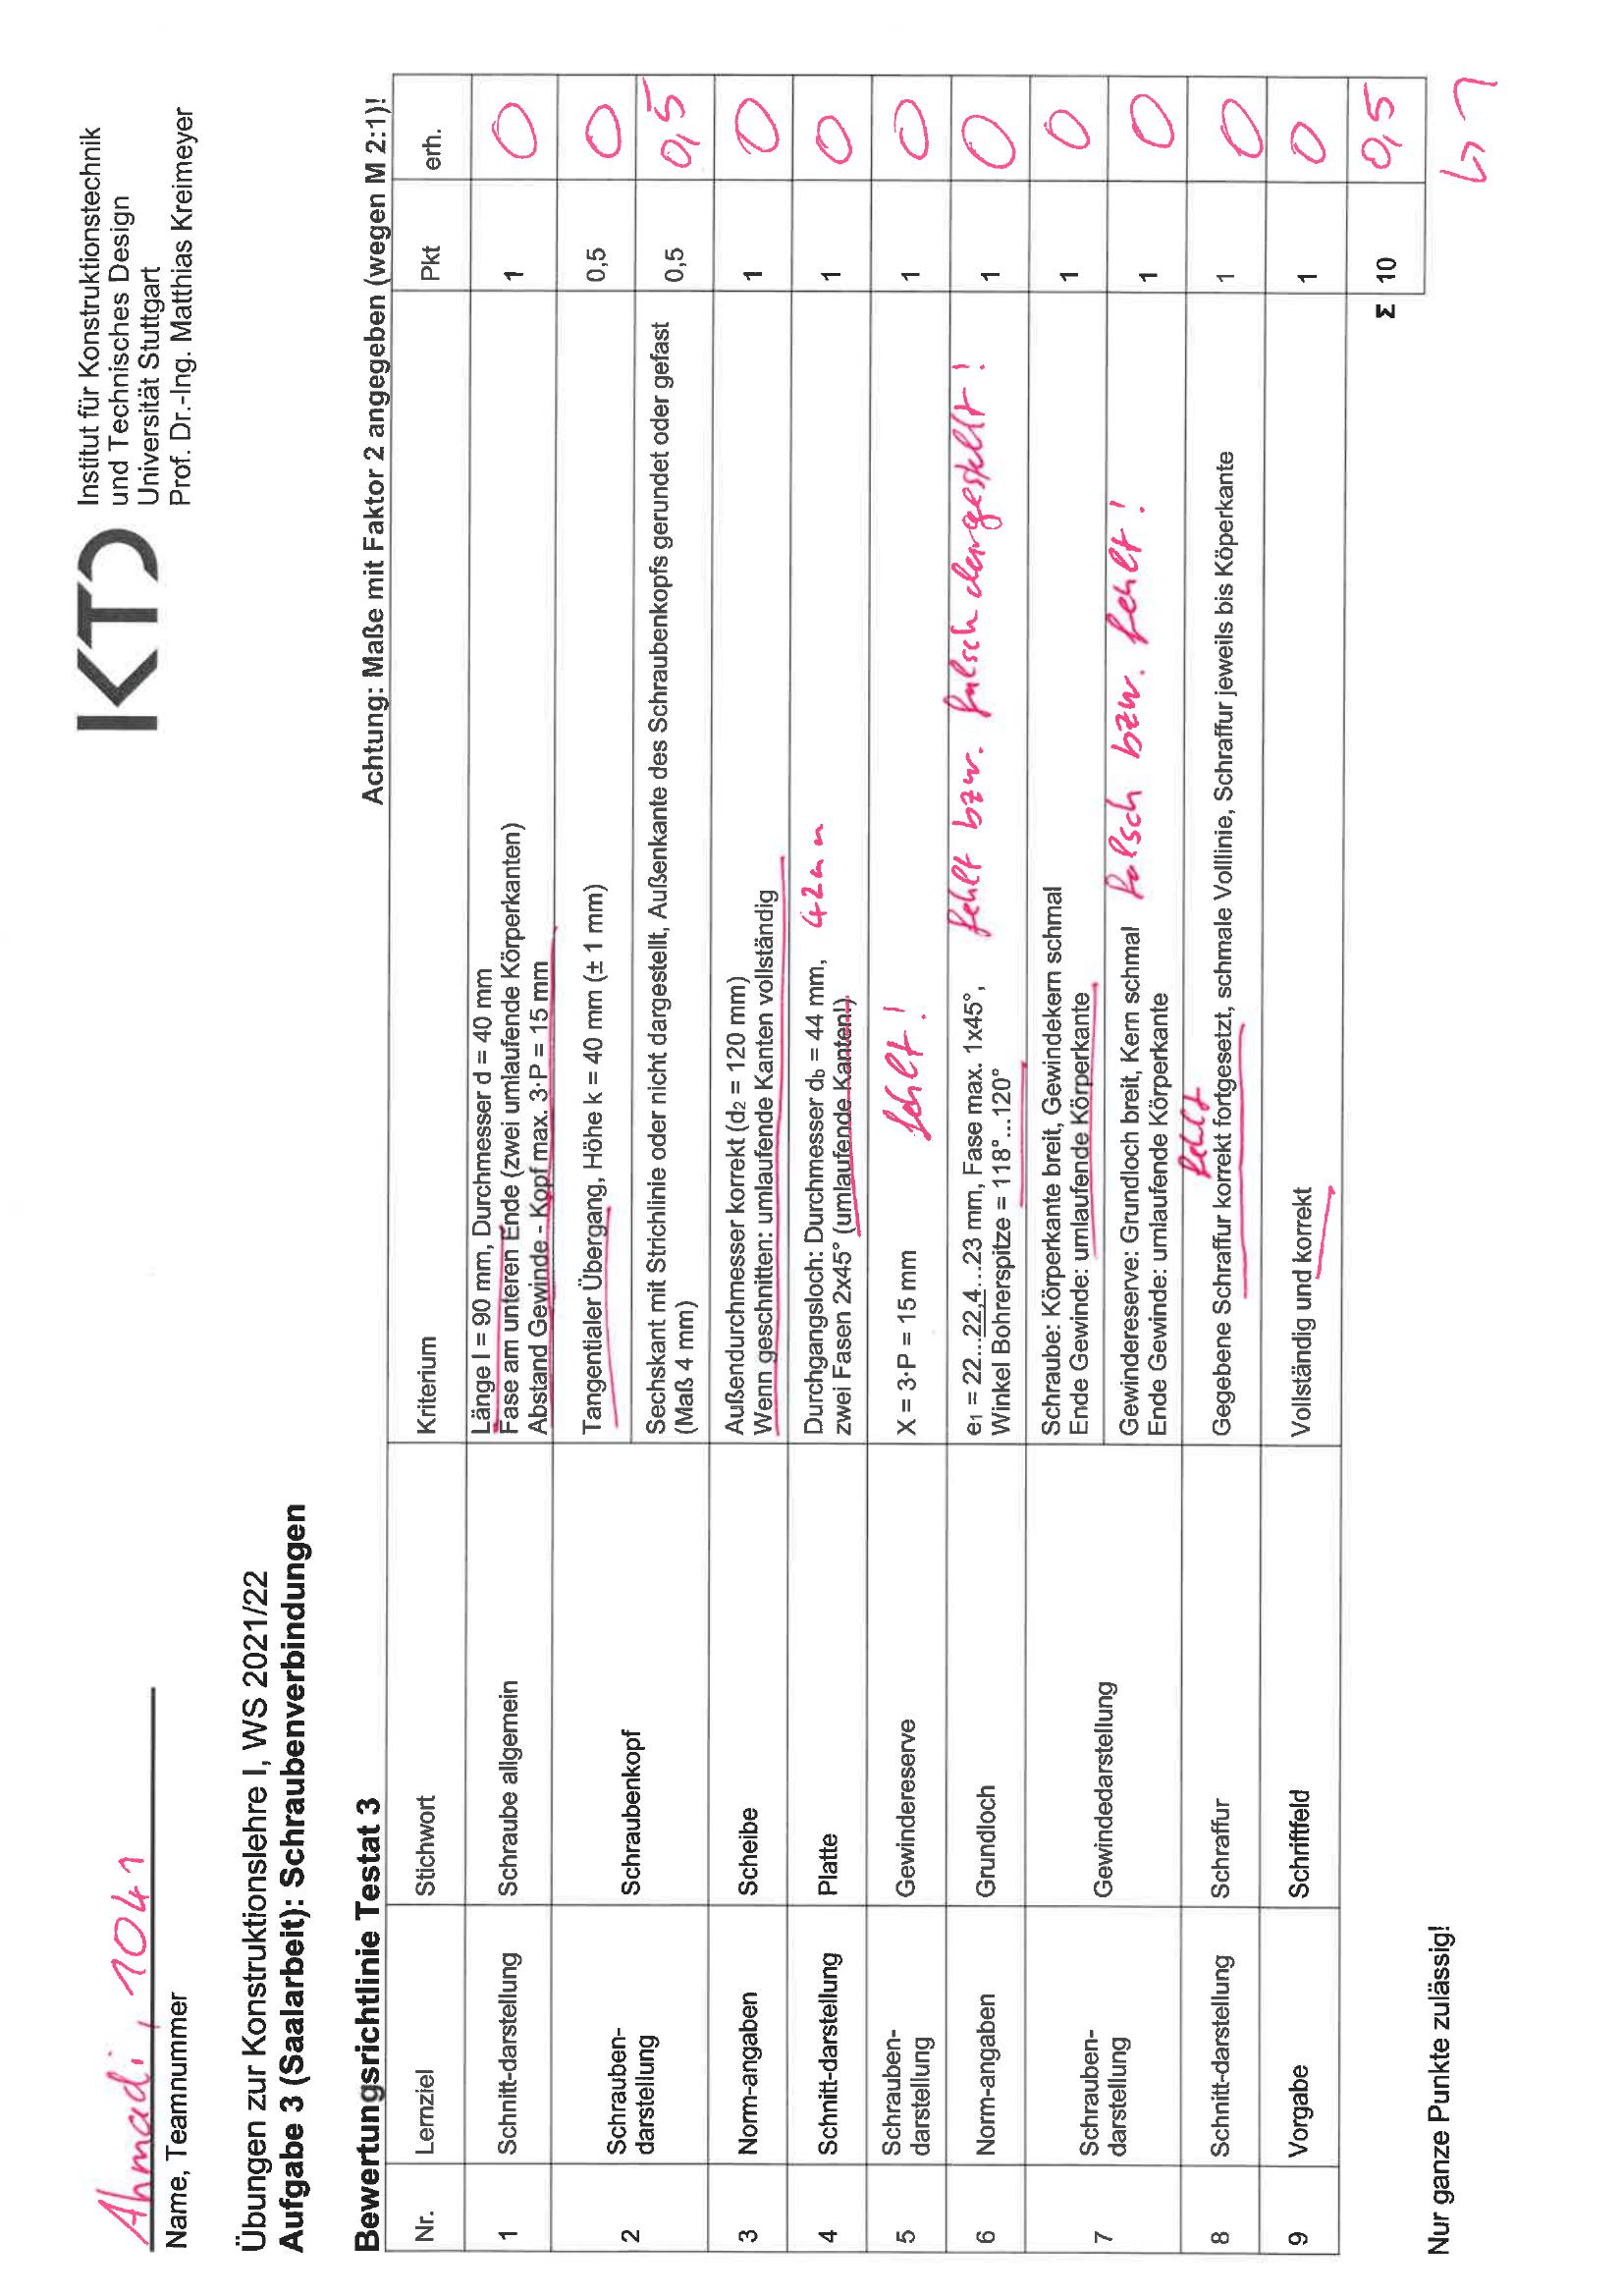 Ahmadi, 1041
Name, Teamnummer
KTD
Institut für Konstruktionstechnik
und Technisches Design
Universität Stuttgart
Prof. Dr.-Ing. Matthias Kreimeyer
Übungen zur Konstruktionslehre I, WS 2021/22
Aufgabe 3 (Saalarbeit): Schraubenverbindungen
Bewertungsrichtlinie Testat 3
Achtung: Maße mit Faktor 2 angegeben (wegen M 2:1)!
Nr. Lernziel Stichwort Kriterium Pkt erh.
1 Schnitt-darstellung Schraube allgemein Länge l = 90 mm, Durchmesser d = 40 mm
Fase am unteren Ende (zwei umlaufende Körperkanten)
Abstand Gewinde - Kopf max. 3·P = 15 mm
1 0
2 Schrauben-
darstellung
Schraubenkopf
Tangentialer Übergang, Höhe k = 40 mm (± 1 mm) 0,5 0
Sechskant mit Strichlinie oder nicht dargestellt, Außenkante des Schraubenkopfs gerundet oder gefast
(Maß 4 mm)
0,5 0,5
3 Norm-angaben Scheibe Außendurchmesser korrekt (d2 = 120 mm)
Wenn geschnitten: umlaufende Kanten vollständig
1 0
4 Schnitt-darstellung Platte Durchgangsloch: Durchmesser db = 44 mm, 42mm
zwei Fasen 2x45° (umlaufende Kanten!)
1 0
5 Schrauben-
darstellung
Gewindereserve X = 3·P = 15 mm fehlt! 1 0
6 Norm-angaben Grundloch e1 = 22...22,4...23 mm, Fase max. 1x45°,
Winkel Bohrerspitze = 118°...120°
fehlt bzw. falsch dargestellt! 1 0
7 Schrauben-
darstellung
Gewindedarstellung
Schraube: Körperkante breit, Gewindekern schmal
Ende Gewinde: umlaufende Körperkante
1 0
Gewindereserve: Grundloch breit, Kern schmal
Ende Gewinde: umlaufende Körperkante
falsch bzw. fehlt! 1 0
fehlt
8 Schnitt-darstellung Schraffur Gegebene Schraffur korrekt fortgesetzt, schmale Volllinie, Schraffur jeweils bis Köperkante 1 0
9 Vorgabe Schriftfeld Vollständig und korrekt 1 0
Σ 10 0,5
Nur ganze Punkte zulässig!